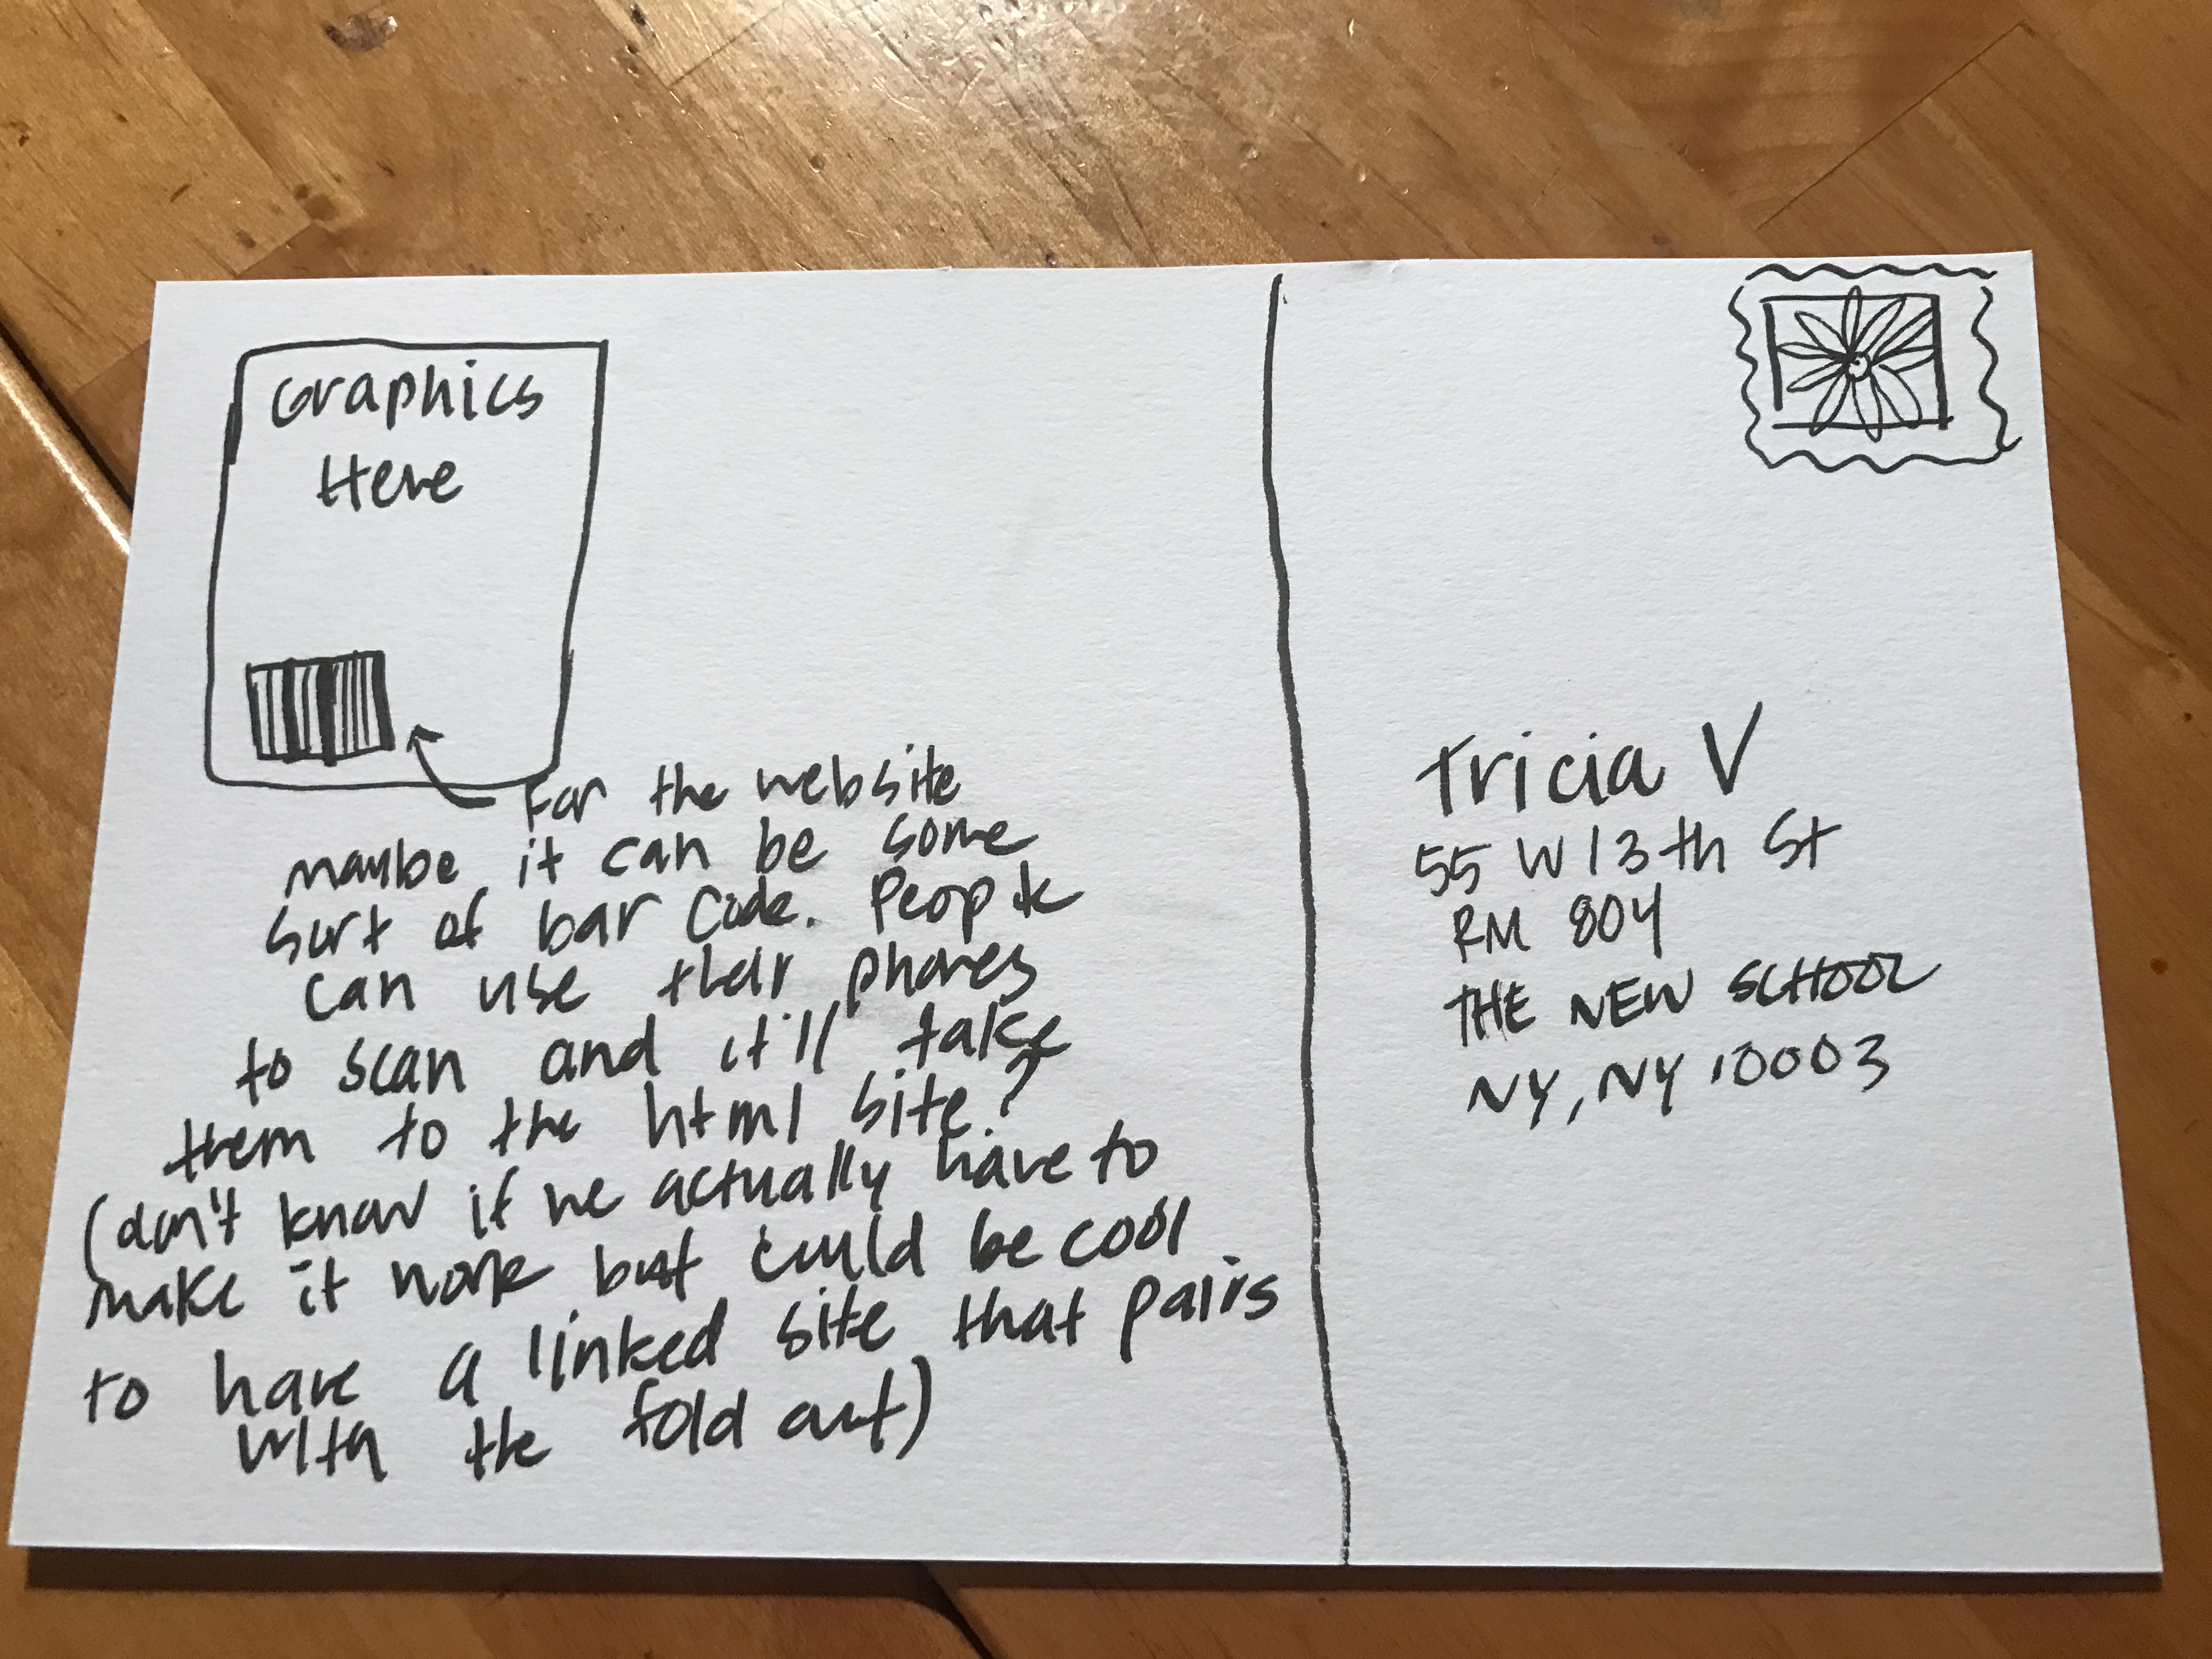 Graphics
Here
For the website
maybe it can be some
sort of bar code. People
can use their phones
to scan and it'll take
them to the html site?
(don't know if we actually have to
make it work but could be cool
to have a linked site that pairs
with the fold out)
Tricia V
55 W 13th St
RM 804
THE NEW SCHOOL
NY, NY 10003